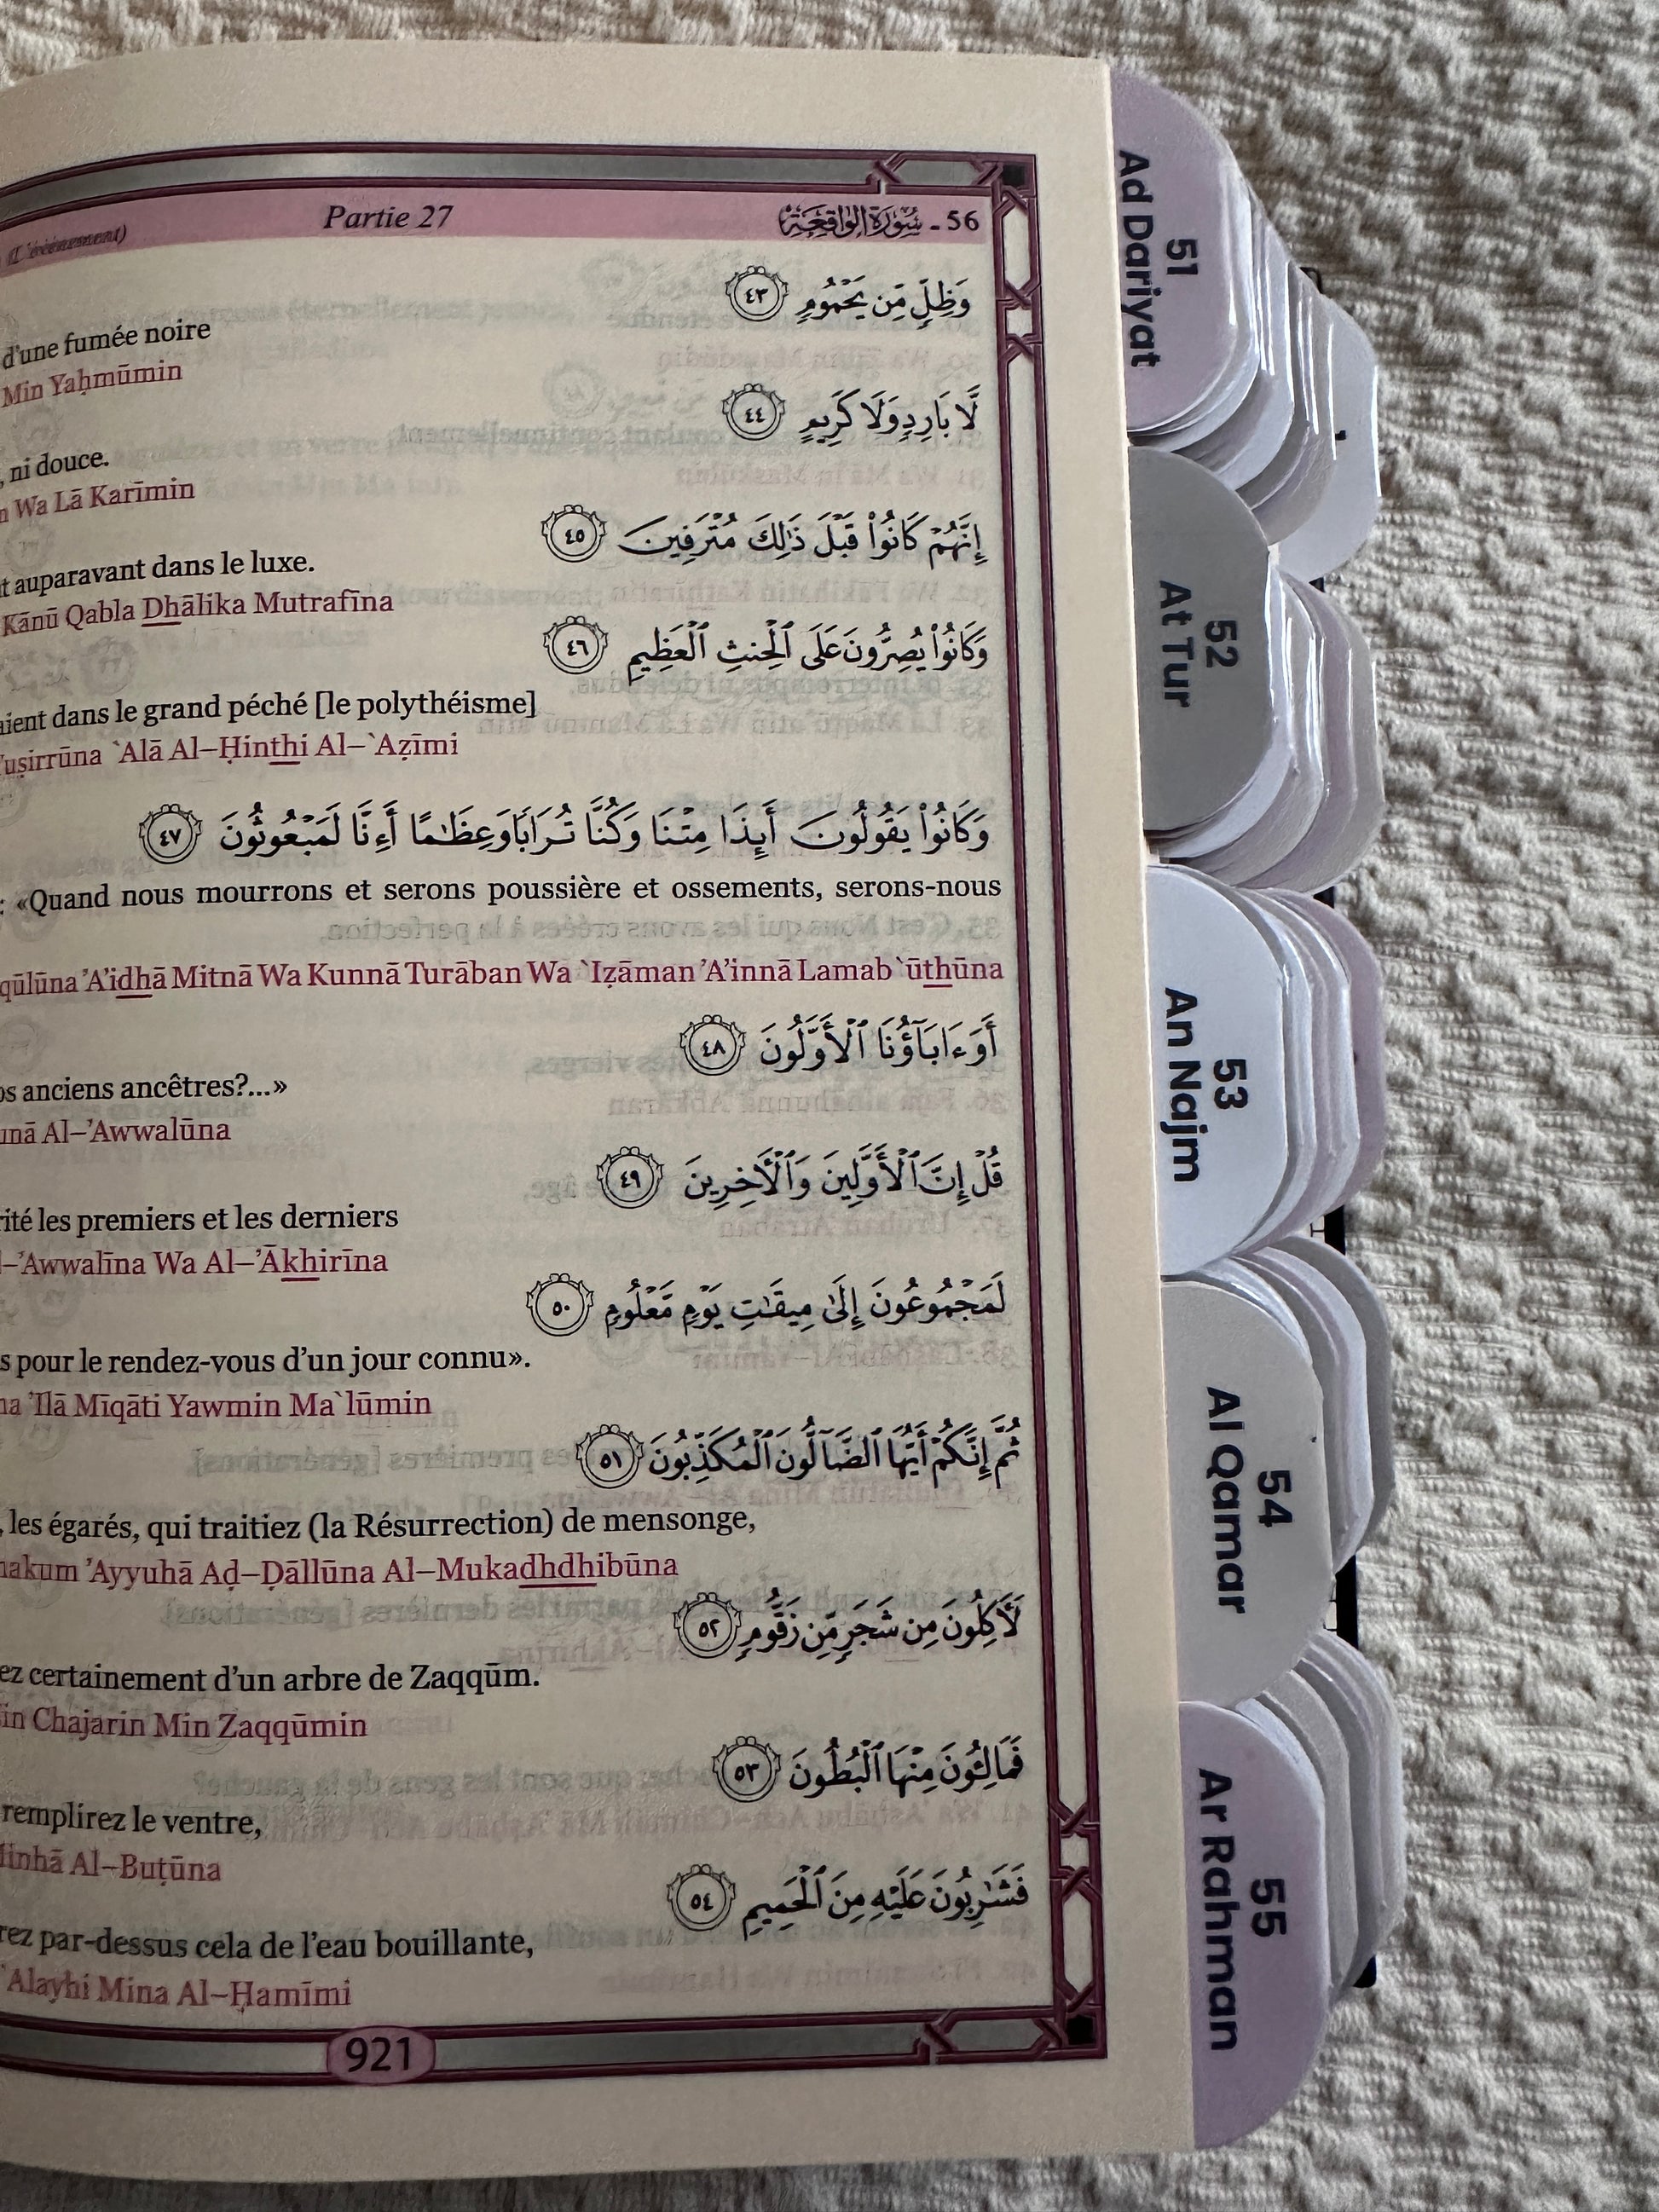 (L'événement) Partie 27 56 - سُورَةُ الوَاقِعَة
وَظِلٍّ مِّن يَحْمُومٍ ٤٣
d'une fumée noire
Min Yaḥmūmin
لَّا بَارِدٍ وَلَا كَرِيمٍ ٤٤
, ni douce.
Wa Lā Karīmin
إِنَّهُمْ كَانُوا۟ قَبْلَ ذَٰلِكَ مُتْرَفِينَ ٤٥
auparavant dans le luxe.
Kānū Qabla Dhālika Mutrafīna
وَكَانُوا۟ يُصِرُّونَ عَلَى ٱلْحِنثِ ٱلْعَظِيمِ ٤٦
dans le grand péché [le polythéisme]
`Alā Al–Ḥinthi Al–`Aẓīmi
وَكَانُوا۟ يَقُولُونَ أَئِذَا مِتْنَا وَكُنَّا تُرَابًا وَعِظَٰمًا أَءِنَّا لَمَبْعُوثُونَ ٤٧
: «Quand nous mourrons et serons poussière et ossements, serons-nous
qūlūna 'A'idhā Mitnā Wa Kunnā Turāban Wa `Iẓāman 'A'innā Lamab`ūthūna
أَوَءَابَآؤُنَا ٱلْأَوَّلُونَ ٤٨
os anciens ancêtres?...»
unā Al–'Awwalūna
قُلْ إِنَّ ٱلْأَوَّلِينَ وَٱلْءَاخِرِينَ ٤٩
rité les premiers et les derniers
l–'Awwalīna Wa Al–'Ākhirīna
لَمَجْمُوعُونَ إِلَىٰ مِيقَٰتِ يَوْمٍ مَّعْلُومٍ ٥٠
s pour le rendez-vous d'un jour connu».
na 'Ilā Mīqāti Yawmin Ma`lūmin
ثُمَّ إِنَّكُمْ أَيُّهَا ٱلضَّآلُّونَ ٱلْمُكَذِّبُونَ ٥١
, les égarés, qui traitiez (la Résurrection) de mensonge,
nakum 'Ayyuhā Aḍ–Ḍāllūna Al–Mukadhdhibūna
لَءَاكِلُونَ مِن شَجَرٍ مِّن زَقُّومٍ ٥٢
ez certainement d'un arbre de Zaqqūm.
in Chajarin Min Zaqqūmin
فَمَالِـُٔونَ مِنْهَا ٱلْبُطُونَ ٥٣
remplirez le ventre,
Minhā Al–Buṭūna
فَشَٰرِبُونَ عَلَيْهِ مِنَ ٱلْحَمِيمِ ٥٤
rez par-dessus cela de l'eau bouillante,
`Alayhi Mina Al–Ḥamīmi
921
51
Ad Dariyat
52
At Tur
53
An Najm
54
Al Qamar
55
Ar Rahman